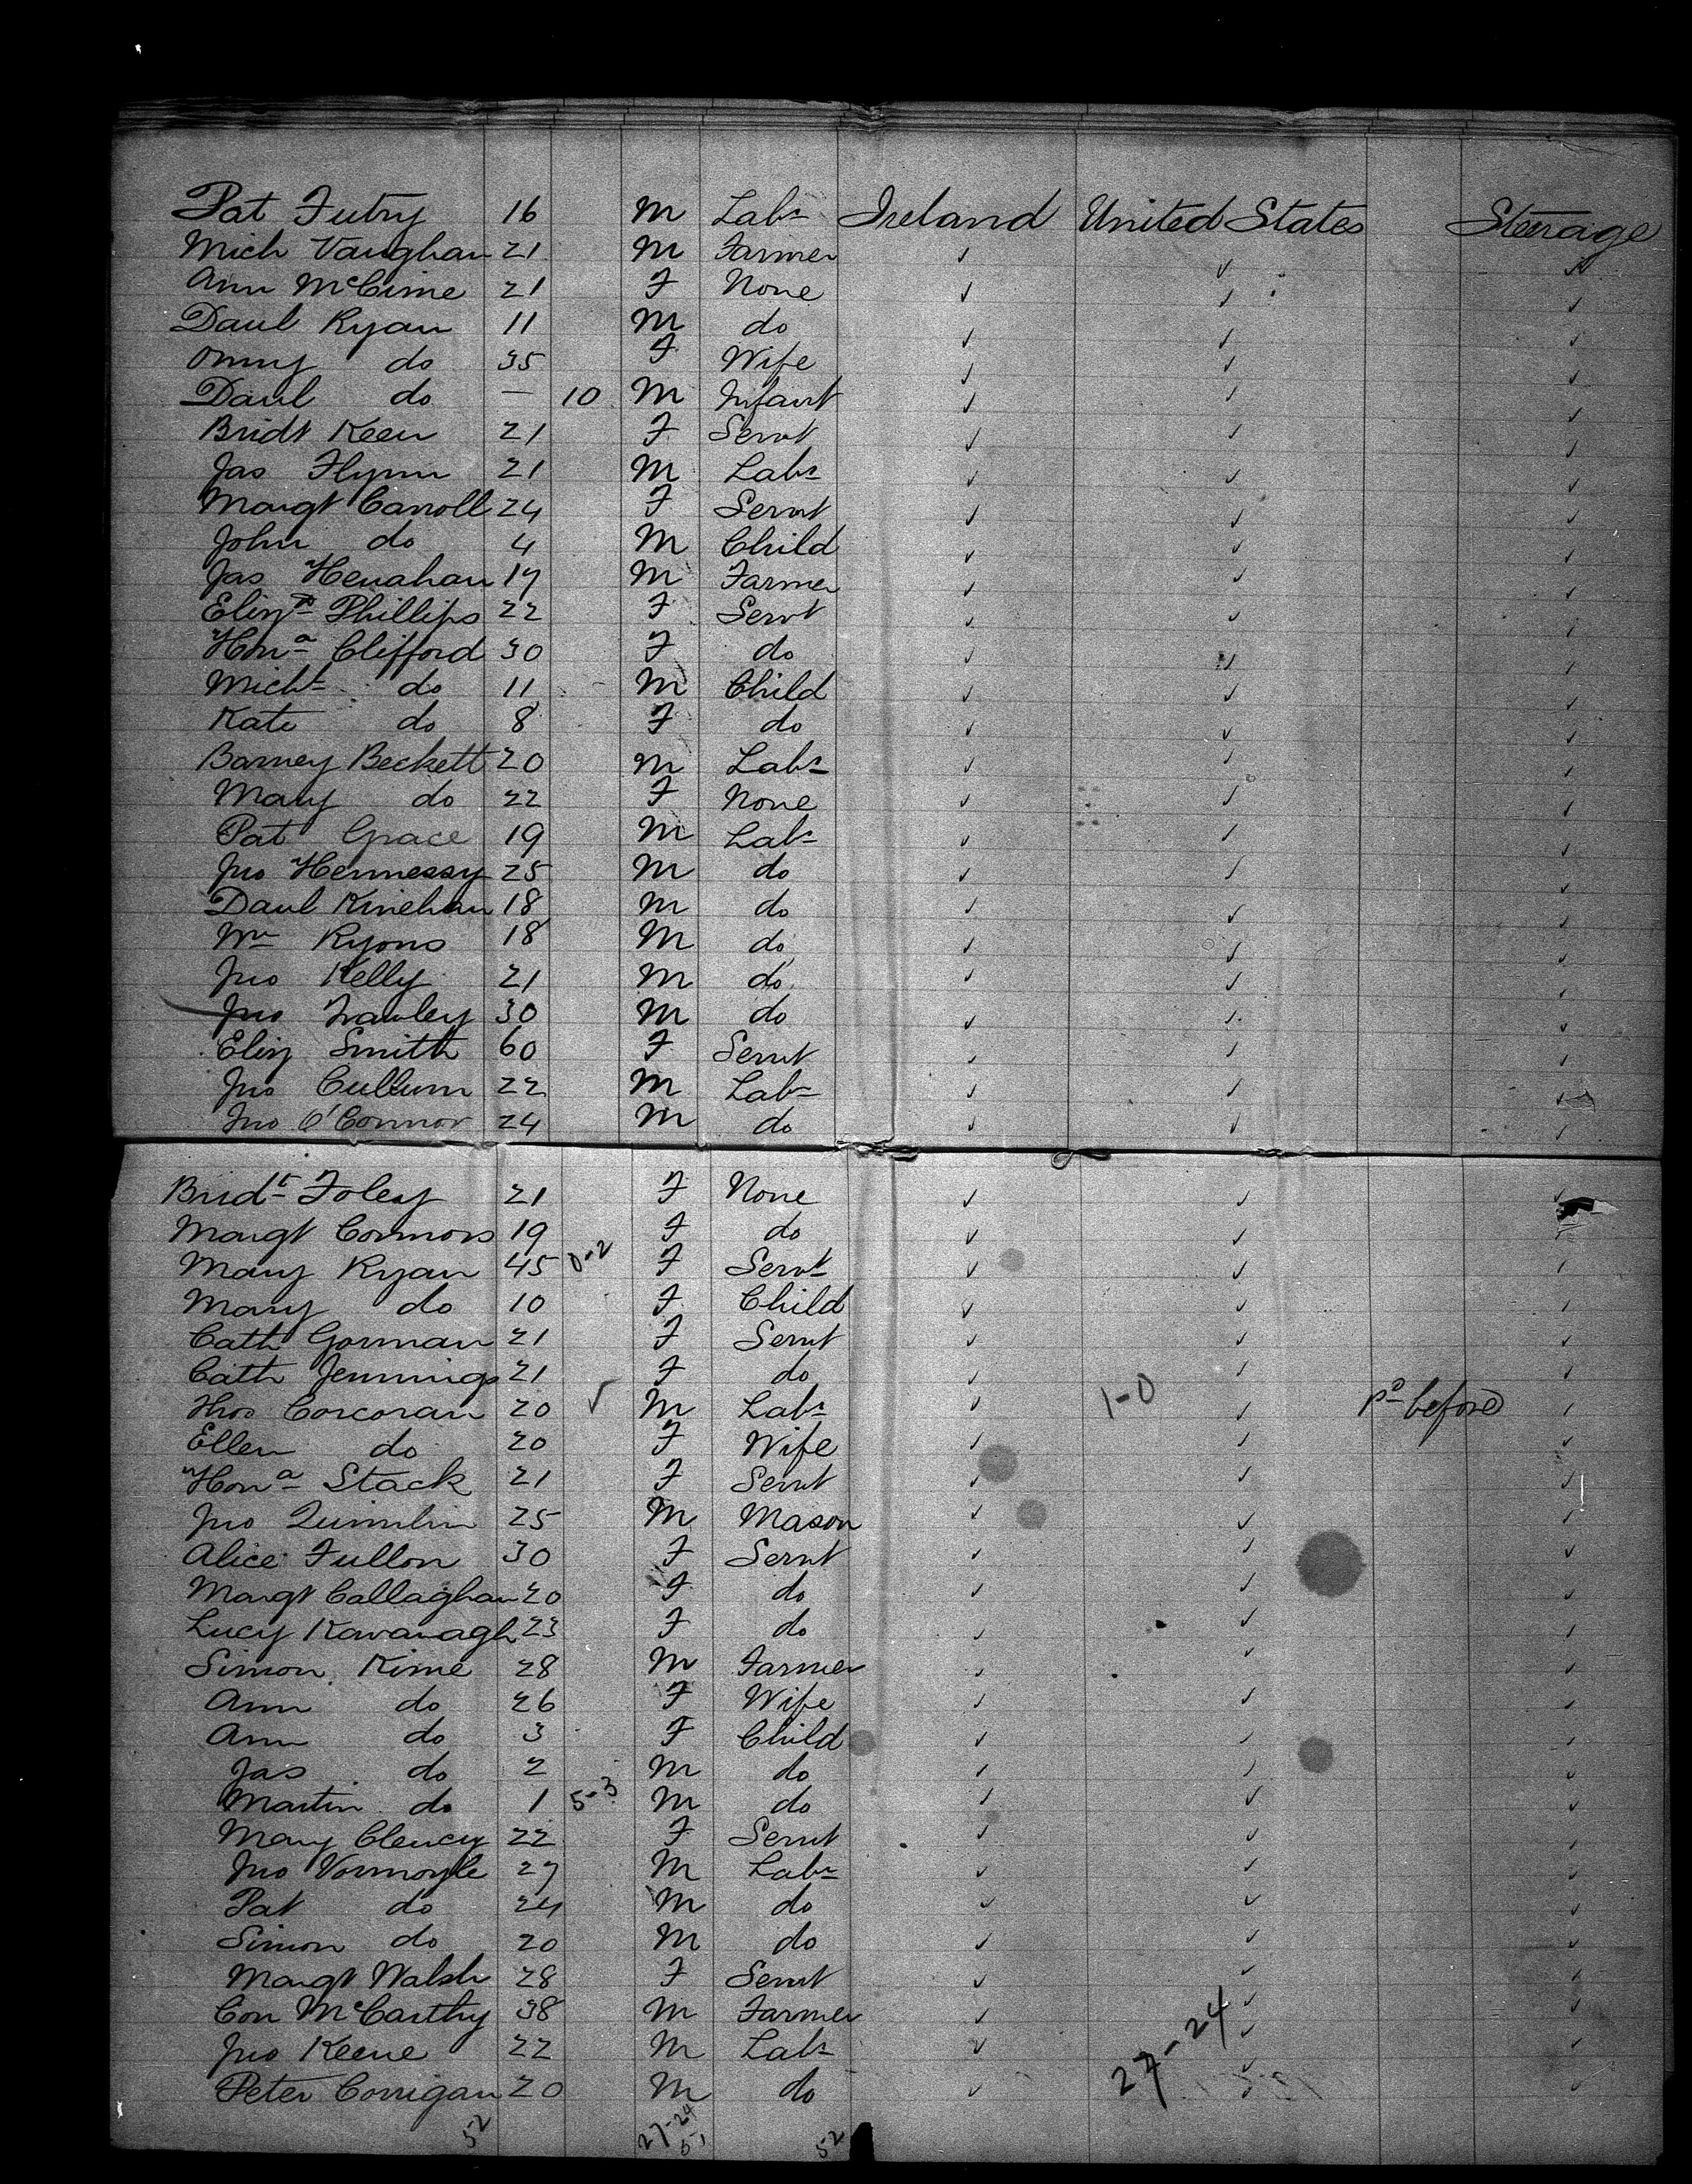 Pat Futry 16 M Labr Ireland United States Steerage
Mich Vaughan 21 M Farmer ✓ ✓ ✓
Ann McCime 21 F None ✓ ✓ ✓
Danl Ryan 11 M do ✓ ✓ ✓
Onny do 35 F Wife ✓ ✓ ✓
Danl do — 10 M Infant ✓ ✓ ✓
Bridt Keen 21 F Servt ✓ ✓ ✓
Jas Flynn 21 M Labr ✓ ✓ ✓
Margt Carroll 24 F Servt ✓ ✓ ✓
John do 4 M Child ✓ ✓ ✓
Jas Henahan 17 M Farmer ✓ ✓ ✓
Elizth Phillips 22 F Servt ✓ ✓ ✓
Hona Clifford 30 F do ✓ ✓ ✓
Michl do 11 M Child ✓ ✓ ✓
Kate do 8 F do ✓ ✓ ✓
Barney Beckett 20 M Labr ✓ ✓ ✓
Mary do 22 F None ✓ ✓ ✓
Pat Grace 19 M Labr ✓ ✓ ✓
Jno Hennessy 25 M do ✓ ✓ ✓
Danl Kinehan 18 M do ✓ ✓ ✓
Wm Ryons 18 M do ✓ ✓ ✓
Jno Kelly 21 M do ✓ ✓ ✓
Jno 30 M do ✓ ✓ ✓
Eliz Smith 60 F Servt ✓ ✓ ✓
Jno Cullum 22 M Labr ✓ ✓ ✓
Jno O'Connor 24 M do ✓ ✓ ✓
Bridt Foley 21 F None ✓ ✓ ✓
Margt Connors 19 F do ✓ ✓
Mary Ryan 45 0-2 F Servt ✓ ✓ ✓
Mary do 10 F Child ✓ ✓ ✓
Cath Gorman 21 F Servt ✓ ✓ ✓
Cath Jennings 21 F do ✓ ✓ ✓
Thos Corcoran 20 ✓ M Labr ✓ 1-0 ✓ Pd before ✓
Ellen do 20 F Wife ✓ ✓ ✓
Hona Stack 21 F Servt ✓ ✓ ✓
Jno Quinlin 25 M Mason ✓ ✓ ✓
Alice Fullon 30 F Servt ✓ ✓ ✓
Margt Callaghan 20 F do ✓ ✓ ✓
Lucy Kavanagh 23 F do ✓ ✓ ✓
Simon Kime 28 M Farmer ✓ ✓ ✓
Ann do 26 F Wife ✓ ✓ ✓
Ann do 3 F Child ✓ ✓ ✓
Jas do 2 M do ✓ ✓ ✓
Martin do 1 5-3 M do ✓ ✓ ✓
Mary Clency 22 F Servt ✓ ✓ ✓
Jno Vormoyle 27 M Labr ✓ ✓ ✓
Pat do 24 M do ✓ ✓ ✓
Simon do 20 M do ✓ ✓ ✓
Margt Walsh 28 F Servt ✓ ✓ ✓
Con McCarthy 38 M Farmer ✓ ✓ ✓
Jno Keene 22 M Labr ✓ ✓ ✓
Peter Corrigan 20 M do ✓ 27-24 ✓ ✓
52 27-24 51 52